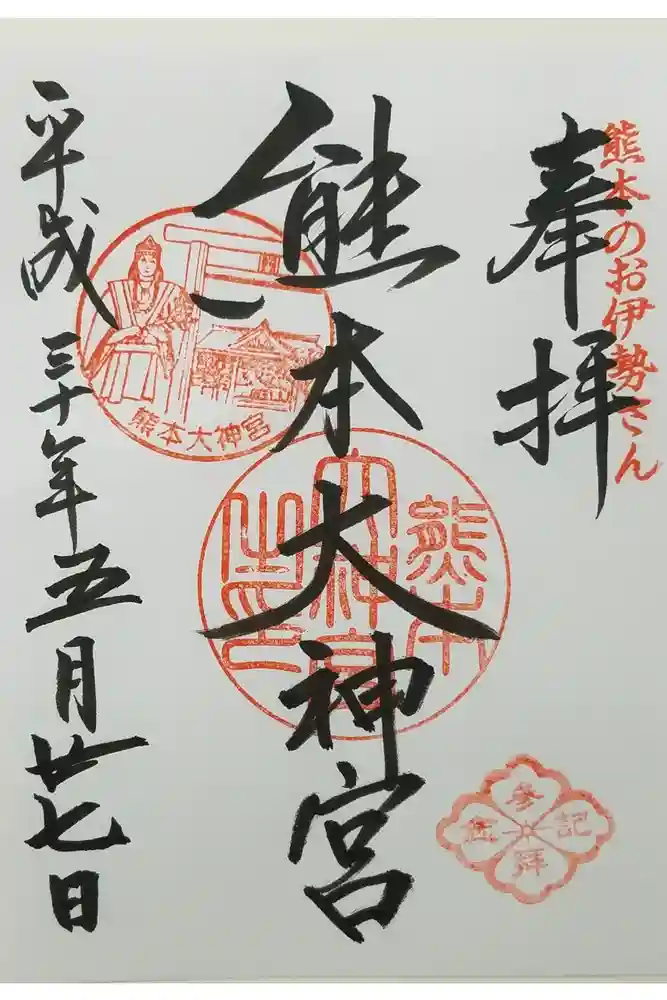 熊本のお伊勢さん
奉拝
熊本大神宮
熊本
大神宮
之印
熊本大神宮
参拝記念
平成三十年五月廿七日